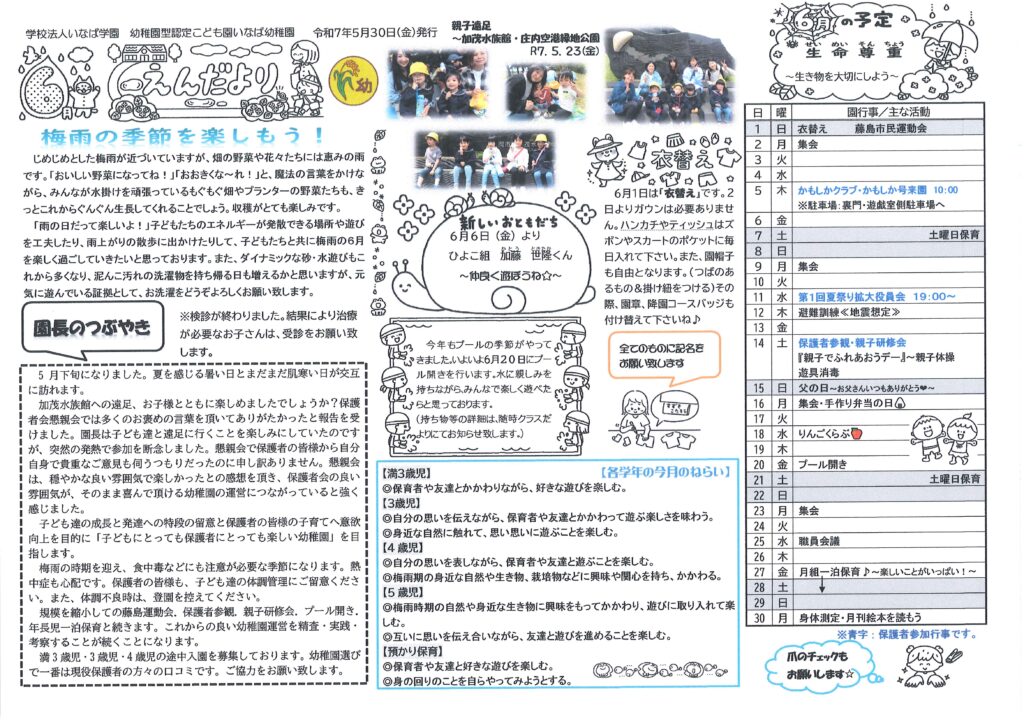 学校法人いなば学園　幼稚園型認定こども園いなば幼稚園　令和7年5月30日(金)発行
6月
えんだより
幼
梅雨の季節を楽しもう！
じめじめとした梅雨が近づいていますが、畑の野菜や花々たちには恵みの雨
です。「おいしい野菜になってね！」「おおきくな～れ！」と、魔法の言葉をかけな
がら、みんなが水掛けを頑張っているもぐもぐ畑やプランターの野菜たちも、き
っとこれからぐんぐん生長してくれることでしょう。収穫がとても楽しみです。
「雨の日だって楽しいよ！」子どもたちのエネルギーが発散できる場所や遊び
を工夫したり、雨上がりの散歩に出かけたりして、子どもたちと共に梅雨の6月
を楽しく過ごしていきたいと思っております。また、ダイナミックな砂・水遊びもこ
れから多くなり、泥んこ汚れの洗濯物を持ち帰る日も増えるかと思いますが、元
気に遊んでいる証拠として、お洗濯をどうぞよろしくお願い致します。
園長のつぶやき
※検診が終わりました。結果により治療
が必要なお子さんは、受診をお願い致
します。
5月下旬になりました。夏を感じる暑い日とまだまだ肌寒い日が交互
に訪れます。
加茂水族館への遠足、お子様とともに楽しめましたでしょうか？保護
者会懇親会では多くのお褒めの言葉を頂いてありがたかったと報告を
受けました。園長は子ども達と遠足に行くことを楽しみにしていたのです
が、突然の発熱で参加を断念しました。懇親会で保護者の皆様から分自
自身で貴重なご意見も伺うつもりだったのに申し訳ありません。懇親会
は、穏やかな良い雰囲気で楽しかったとの感想を頂き、保護者会の良い
雰囲気が、そのまま喜んで頂ける幼稚園の運営につながっていると強く
感じました。
子ども達の成長と発達への特段の留意と保護者の皆様の子育てへ意欲
向上を目的に「子どもにとっても保護者にとっても楽しい幼稚園」を目
指します。
梅雨の時期を迎え、食中毒などにも注意が必要な季節になります。熱
中症も心配です。保護者の皆様も、子ども達の体調管理にご留意くださ
い。また、体調不良時は、登園を控えてください。
規模を縮小しての藤島運動会、保護者参観、親子研修会、プール開き、
年長児一泊保育と続きます。これからの良い幼稚園運営を精査・実践・
考察することが続くことになります。
満3歳児・3歳児・4歳児の途中入園を募集しております。幼稚園選び
で一番は現役保護者の方々の口コミです。ご協力をお願い致します。
親子遠足
～加茂水族館・庄内空港緑地公園
R7.5.23(金)
新しいおともだち
6月6日（金）より
ひよこ組　加藤　世隆くん
～仲良く遊ぼうね☆～
今年もプールの季節がやって
きました。いよいよ6月20日にプー
ル開きを行います。水に親しみを
持ちながら、みんなで楽しく遊べた
らと思っております。
(持ち物等の詳細は、随時クラスだ
よりにてお知らせ致します。)
衣替え
6月1日は「衣替え」です。2
日よりガウンは必要ありませ
ん。ハンカチやティッシュはズ
ボンやスカートのポケットに毎
日入れて下さい。また、園帽子
も自由となります。(つばのあ
るもの＆掛け紐をつける)その
際、園章、降園コースバッジも
付け替えて下さいね♪
全てのものに記名を
お願い致します
【満3歳児】
【各学年の今月のねらい】
◎保育者や友達とかかわりながら、好きな遊びを楽しむ。
【3歳児】
◎自分の思いを伝えながら、保育者や友達とかかわって遊ぶ楽しさを味わう。
◎身近な自然に触れて、思い思いに遊ぶことを楽しむ。
【4歳児】
◎自分の思いを表しながら、保育者や友達と遊ぶことを楽しむ。
◎梅雨期の身近な自然や生き物、栽培物などに興味や関心を持ち、かかわる。
【5歳児】
◎梅雨時期の自然や身近な生き物に興味をもってかかわり、遊びに取り入れて楽
しむ。
◎互いに思いを伝え合いながら、友達と遊びを進めることを楽しむ。
【預かり保育】
◎保育者や友達と好きな遊びを楽しむ。
◎身の回りのことを自らやってみようとする。
6月の予定
せいめいそんちょう
生命尊重
～生き物を大切にしよう～
日　曜　園行事／主な活動
1　日　衣替え　藤島市民運動会
2　月　集会
3　火
4　水
5　木　かもしかクラブ・かもしか号来園　10:00
※駐車場：裏門・遊戯室側駐車場へ
6　金
7　土　土曜日保育
8　日
9　月　集会
10　火
11　水　第1回夏祭り拡大役員会　19：00～
12　木　避難訓練≪地震想定≫
13　金
14　土　保護者参観・親子研修会
『親子でふれあおうデー』～親子体操
遊具消毒
15　日　父の日～お父さんいつもありがとう❤～
16　月　集会・手作り弁当の日
17　火
18　水　りんごくらぶ
19　木
20　金　プール開き
21　土　土曜日保育
22　日
23　月　集会
24　火
25　水　職員会議
26　木
27　金　月組一泊保育♪～楽しいことがいっぱい！～
28　土　↓
29　日
30　月　身体測定・月刊絵本を読もう
※青字：保護者参加行事です。
爪のチェックも
お願いします☆